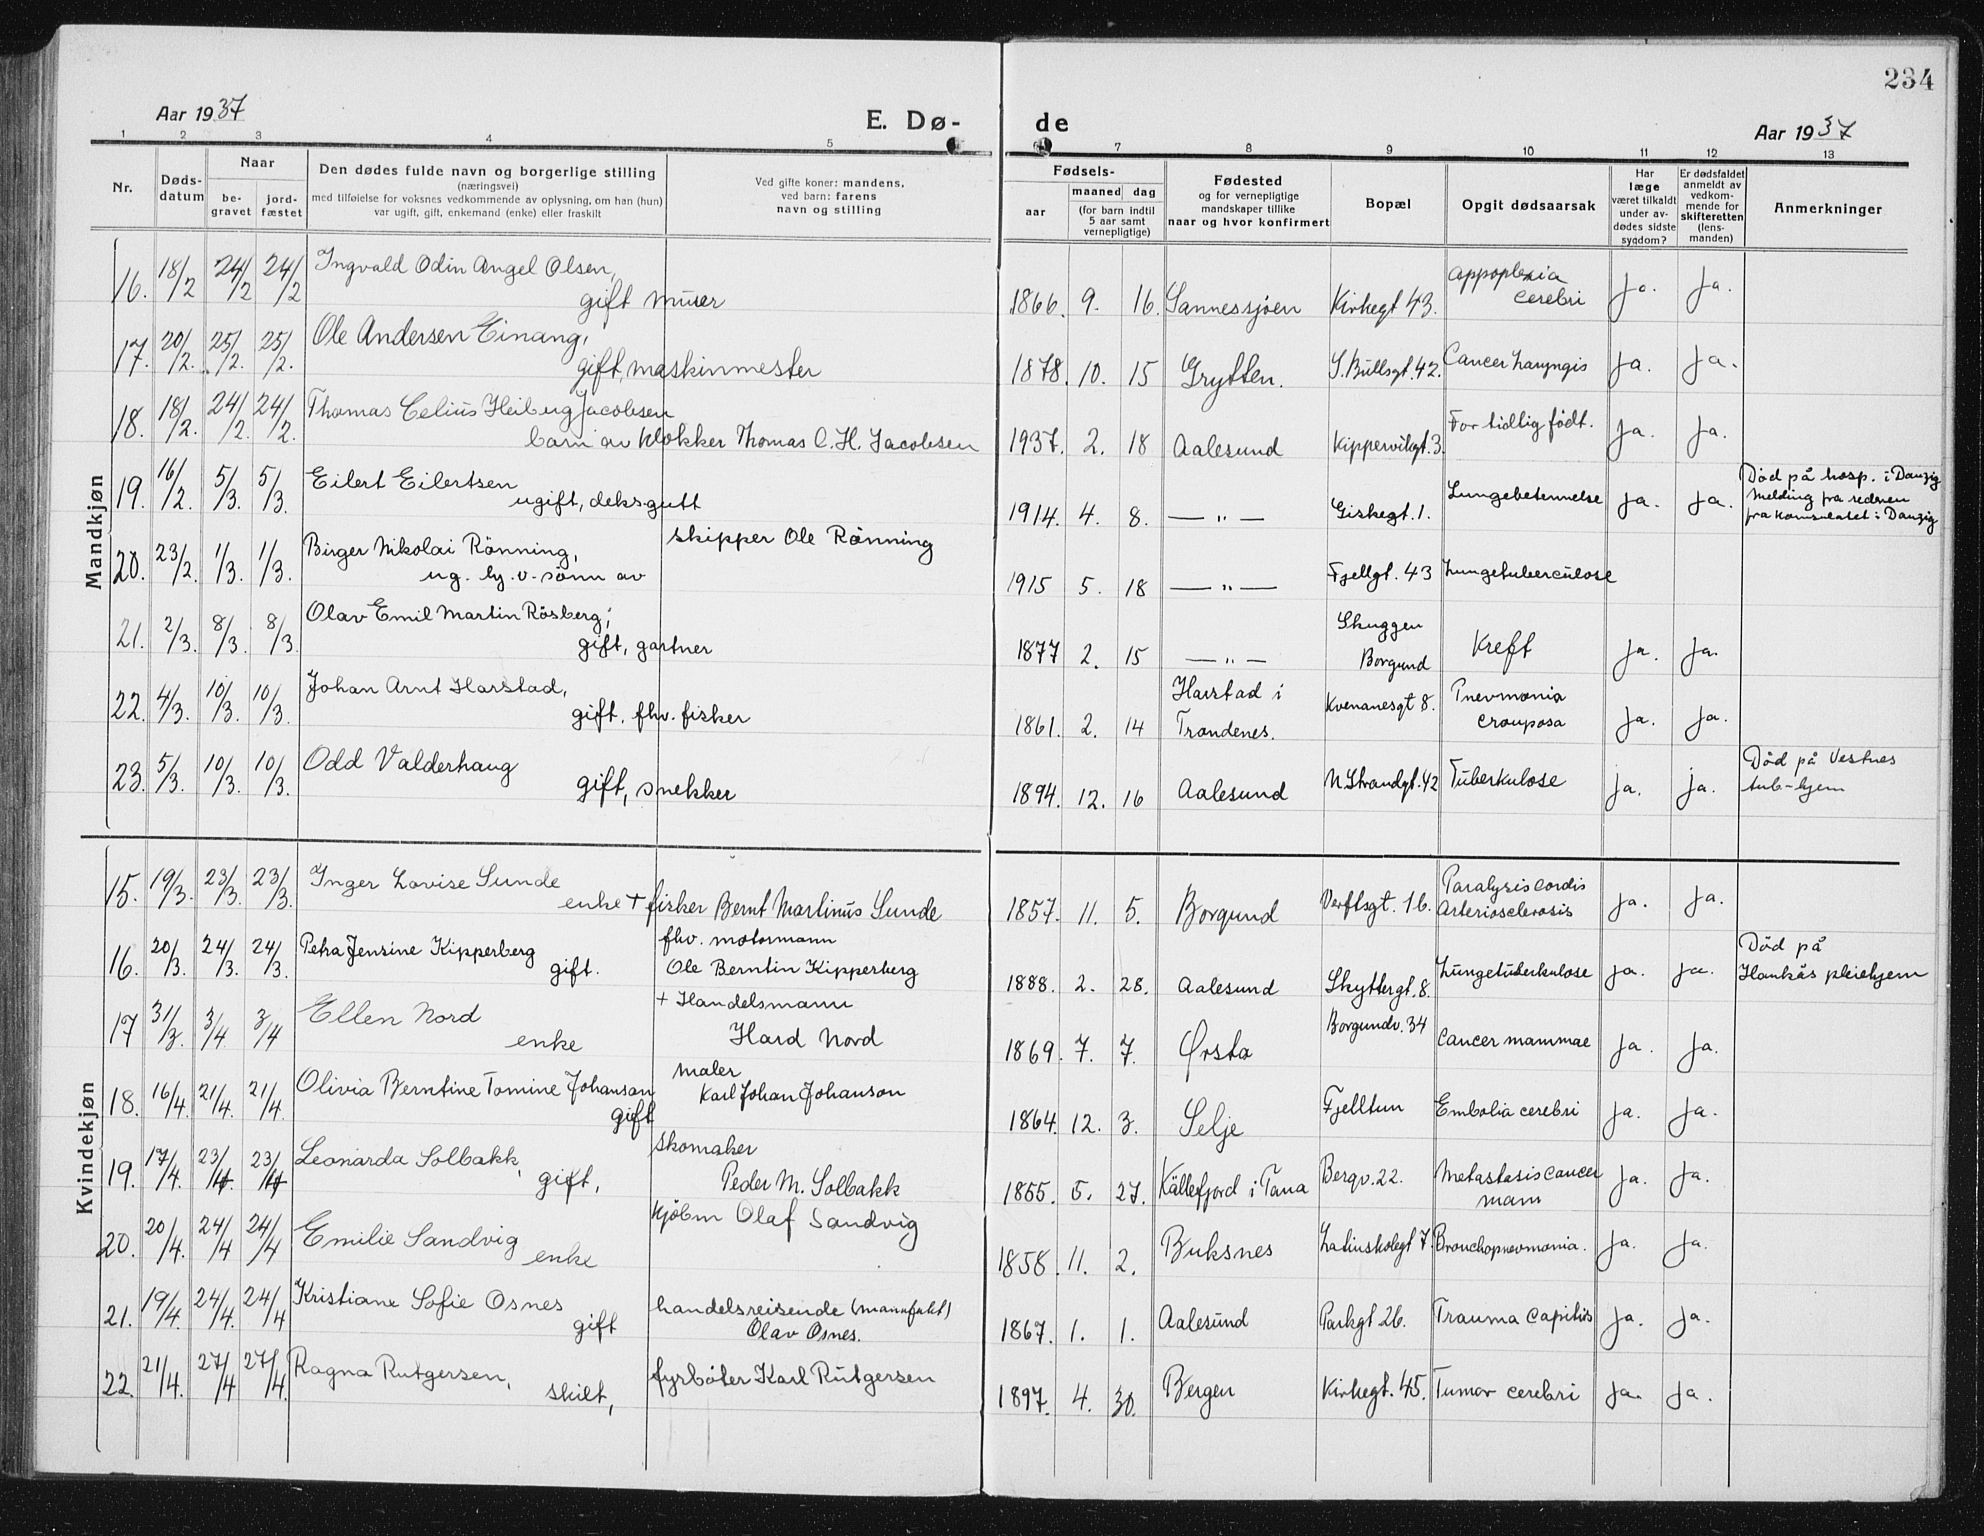 234
Aar 1937
E. Dø-
de
Aar 1937
1 2 3 4 5 7 8 9 10 11 12 13
Nr.
Døds-
datum
Naar
be-
gravet
jord-
fæstet
Den dødes fulde navn og borgerlige stilling
(næringsvei)
med tilføielse for voksnes vedkommende av oplysning, om han (hun)
var ugift, gift, enkemand (enke) eller fraskilt
Ved gifte koner: mandens,
ved barn: farens
navn og stilling
Fødsels-
aar
maaned dag
(for barn indtil
5 aar samt
vernepligtige)
Fødested
og for vernepligtige
mandskaper tillike
naar og hvor konfirmert
Bopæl
Opgit dødsaarsak
Har
læge
været tilkaldt
under av-
dødes sidste
sygdom?
Er dødsfaldet
anmeldt av
vedkom-
mende for
skifteretten
(lens-
manden)
Anmerkninger
Mandkjøn
16. 18/2 24/2 24/2 Ingvald Odin Angel Olsen,
gift murer
1866. 9. 16. Sannessjøen Kirkegt 43. Appoplexia
cerebri ja. ja.
17. 20/2. 25/2. 25/2. Ole Andersen Einang,
gift, maskinmester
1878. 10. 15 Grytten. S. Bullsgt. 42. Cancer Laryngis ja. ja.
18. 18/2. 24/2. 24/2. Thomas Celius Heiberg Jacobsen
barn av klokker Thomas C. H. Jacobsen
1937. 2. 18 Aalesund Kippervikgt. 3. For tidlig født. ja. ja.
19. 16/2. 5/3. 5/3. Eilert Eilertsen
ugift, deksgutt
1914. 4. 8. — „ — Giskegt. 1. Lungebetennelse ja. ja. Død på hosp. i Danzig
Melding fra rederen
fra konsulatet i Danzig
20. 23/2. 1/3. 1/3. Birger Nikolai Rönning,
ug. hj. v. sönn av
skipper Ole Rönning
1915 5. 18 — „ — Fjellgt. 43 Lungetuberculose
21. 2/3. 8/3. 8/3. Olav Emil Martin Rösberg;
gift, gartner
1877 2. 15 — „ — Skuggen
Borgund Kreft ja. ja.
22. 4/3. 10/3. 10/3. Johan Arnt Harstad,
gift. fhv. fisker
1861. 2. 14 Harstad i
Trondenes. Kvenanesgt 8. Pnevmonia
crouposa ja. ja.
23. 5/3. 10/3. 10/3. Odd Valderhaug
gift, snekker
1894. 12. 16 Aalesund N. Strandgt. 42 Tuberkulose ja. ja. Död på Vestnes
tub-hjem
Kvindekjøn
15. 19/3. 23/3. 23/3. Inger Lovise Sunde
enke + fisker Bernt Martinus Sunde
1857. 11. 5. Borgund Verftsgt. 16. Paralysis cordis
Arteriosclerosis ja. ja.
16. 20/3. 24/3. 24/3. Petra Jensine Kipperberg
gift.
fhv. motormann
Ole Berntin Kipperberg
1888. 2. 28. Aalesund Skyttergt. 8. Lungetuberkulose ja. ja. Död på
Haukås pleiehjem
17 31/3. 3/4 3/4 Ellen Nord
enke
+ Handelsmann
Hard Nord
1869. 7. 7. Ørsta Borgundv. 34 Cancer mammae ja. ja.
18. 16/4. 21/4. 21/4. Olivia Berntine Tomine Johanson
gift
maler
Karl Johan Johanson
1864. 12. 3. Selje Fjelltun Embolia cerebri ja. ja.
19. 17/4. 23/4 23/4 Leonarda Solbakk,
gift,
skomaker
Peder M. Solbakk
1855. 5. 27. Källefjord i Tana Bergv. 22. Metastasis cancer
mam ja. ja.
20. 20/4. 24/4 24/4 Emilie Sandvig
enke
kjöbm Olaf Sandvig
1858. 11. 2. Buksnes Latinskolegt 7. Bronchopnevmonia. ja. ja.
21. 19/4. 24/4. 24/4 Kristiane Sofie Osnes
gift
handelsreisende (manufakt)
Olav Osnes.
1867. 1. 1. Aalesund Parkgt 26. Trauma capitis ja. ja.
22. 21/4. 27/4 27/4. Ragna Rutgersen,
skilt,
fyrböter Karl Rutgersen
1897. 4. 30. Bergen Kirkegt. 45. Tumor cerebri ja. ja.